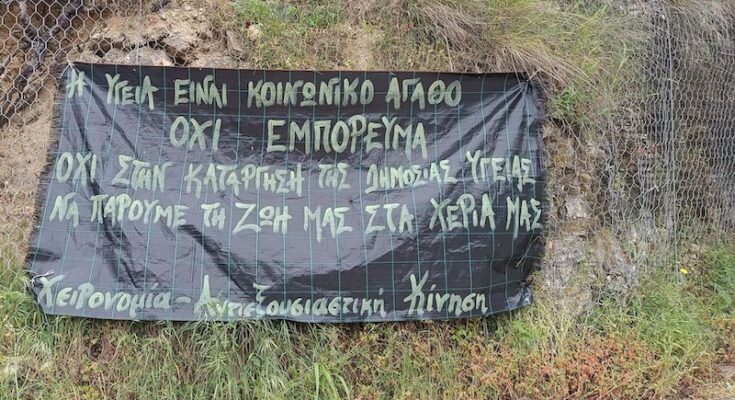 Η ΥΓΕΙΑ ΕΙΝΑΙ ΚΟΙΝΩΝΙΚΟ ΑΓΑΘΟ
ΟΧΙ ΕΜΠΟΡΕΥΜΑ
ΟΧΙ ΣΤΗΝ ΚΑΤΑΡΓΗΣΗ ΤΗΣ ΔΗΜΟΣΙΑΣ ΥΓΕΙΑΣ
ΝΑ ΠΑΡΟΥΜΕ ΤΗ ΖΩΗ ΜΑΣ ΣΤΑ ΧΕΡΙΑ ΜΑΣ
Χειρονομία - Αντιεξουσιαστική Κίνηση